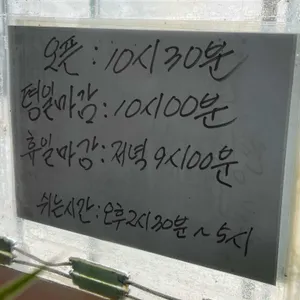 오픈 : 10시 30분
평일마감 : 10시00분
휴일마감 : 저녁 9시00분
쉬는시간 : 오후2시30분 ~ 5시